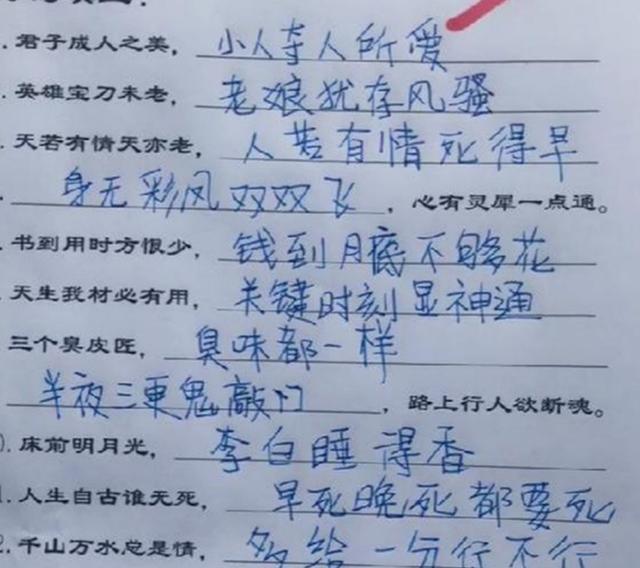 .君子成人之美，小人夺人所爱
.英雄宝刀未老，老娘犹存风骚
.天若有情天亦老，人若有情死得早
身无彩凤双双飞，心有灵犀一点通。
.书到用时方恨少，钱到月底不够花
.天生我材必有用，关键时刻显神通
三个臭皮匠，臭味都一样
半夜三更鬼敲门，路上行人欲断魂。
).床前明月光，李白睡得香
.人生自古谁无死，早死晚死都要死
2.千山万水总是情，多给一分行不行